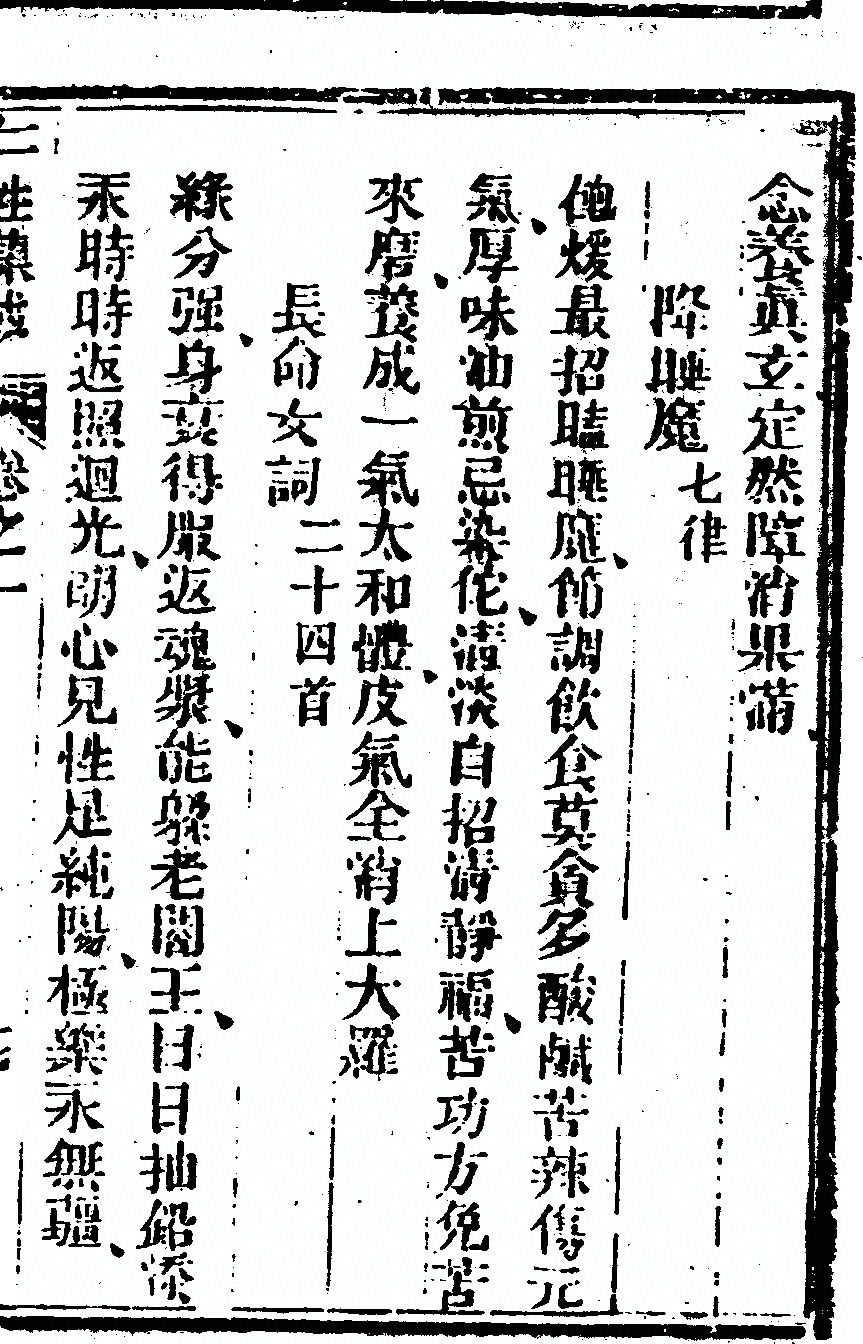 念養眞玄定然障消果滿
降睡魔七律
飽煖最招瞌睡魔節調飲食莫貪多酸鹹苦辣傷元
氣厚味油煎忌染佗淸淡自招淸靜福苦功方免苦
來磨養成一氣太和體皮氣全消上大羅
長命女詞二十四首
緣分强身莫得服返魂漿能躱老閻王日日抽鉛添
汞時時返照迴光明心見性足純陽極樂永無疆
卷之一